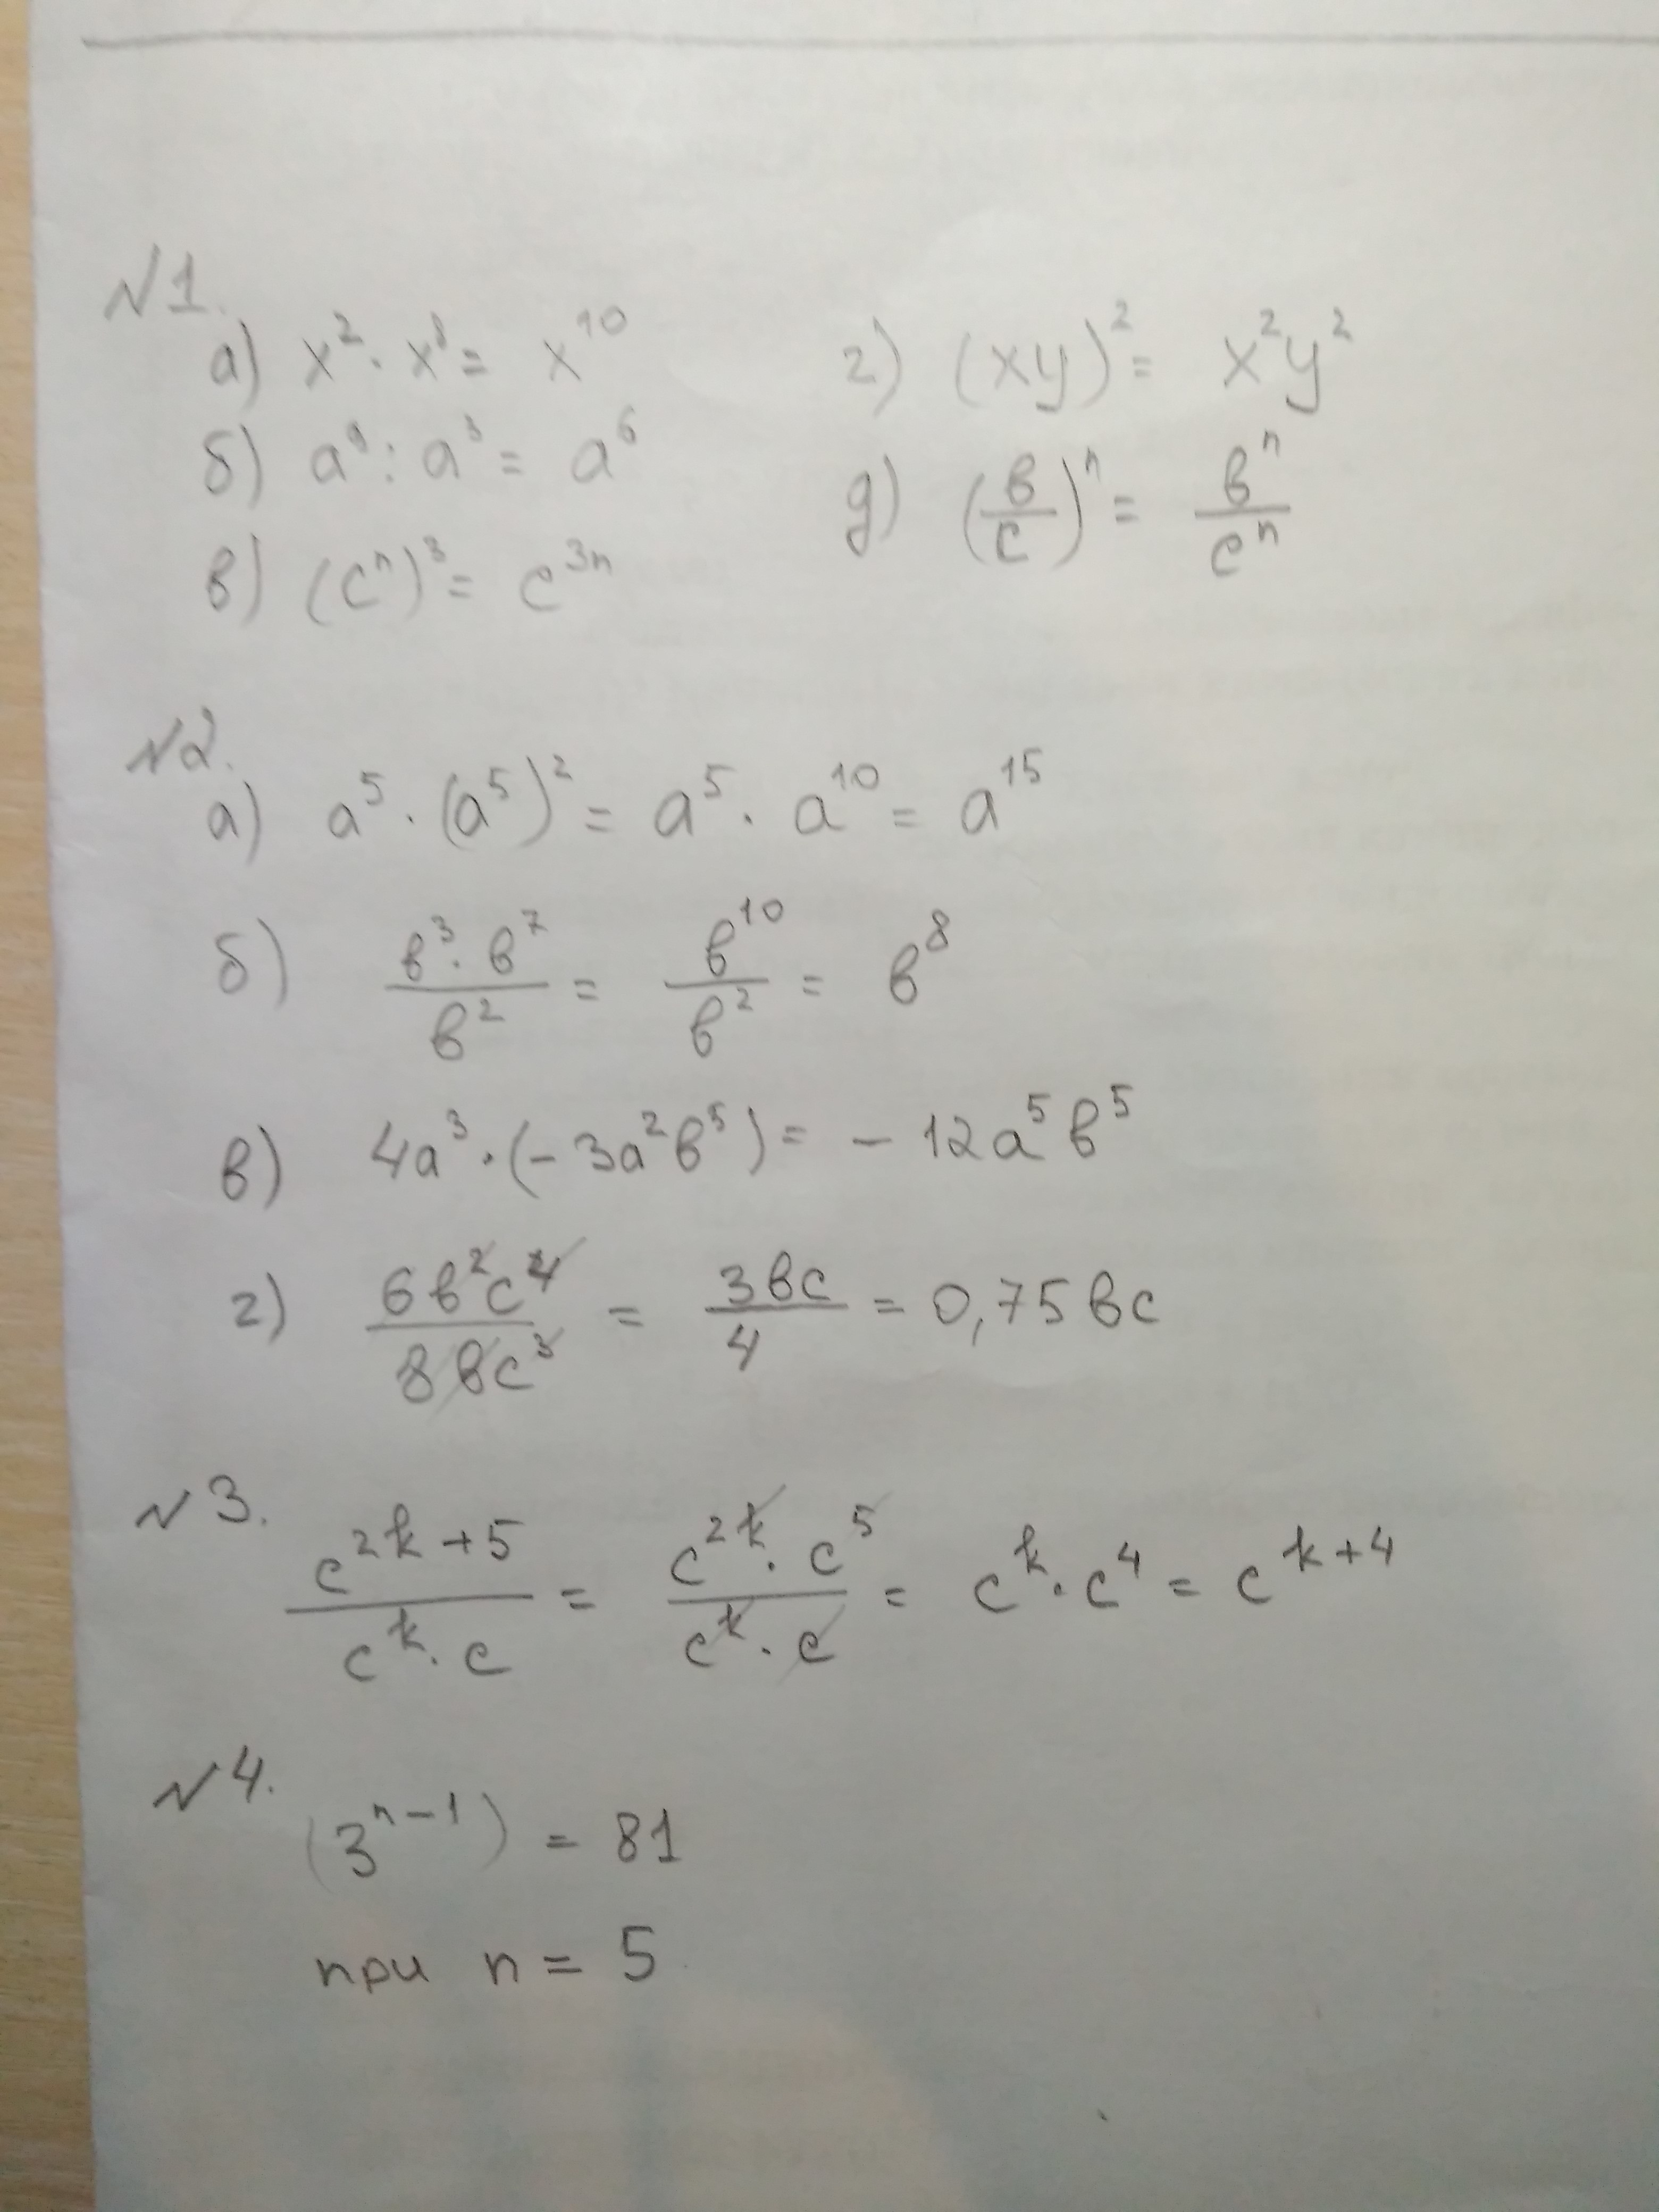 №1.
а) x² · x⁸ = x¹⁰
б) a⁹ : a³ = a⁶
в) (cⁿ)³ = c³ⁿ
г) (xy)² = x²y²
д) (в/c)ⁿ = вⁿ/cⁿ
№2.
а) a⁵ · (a⁵)² = a⁵ · a¹⁰ = a¹⁵
б) (в³ · в⁷)/в² = в¹⁰/в² = в⁸
в) 4a³ · (-3a²в⁵) = -12a⁵в⁵
г) 6в²c⁴/8вc³ = 3вc/4 = 0,75вc
№3.
c^(2k+5)/(c^k · c) = (c^(2k) · c⁵)/(c^k · c) = c^k · c⁴ = c^(k+4)
№4.
(3ⁿ⁻¹) = 81
при n = 5